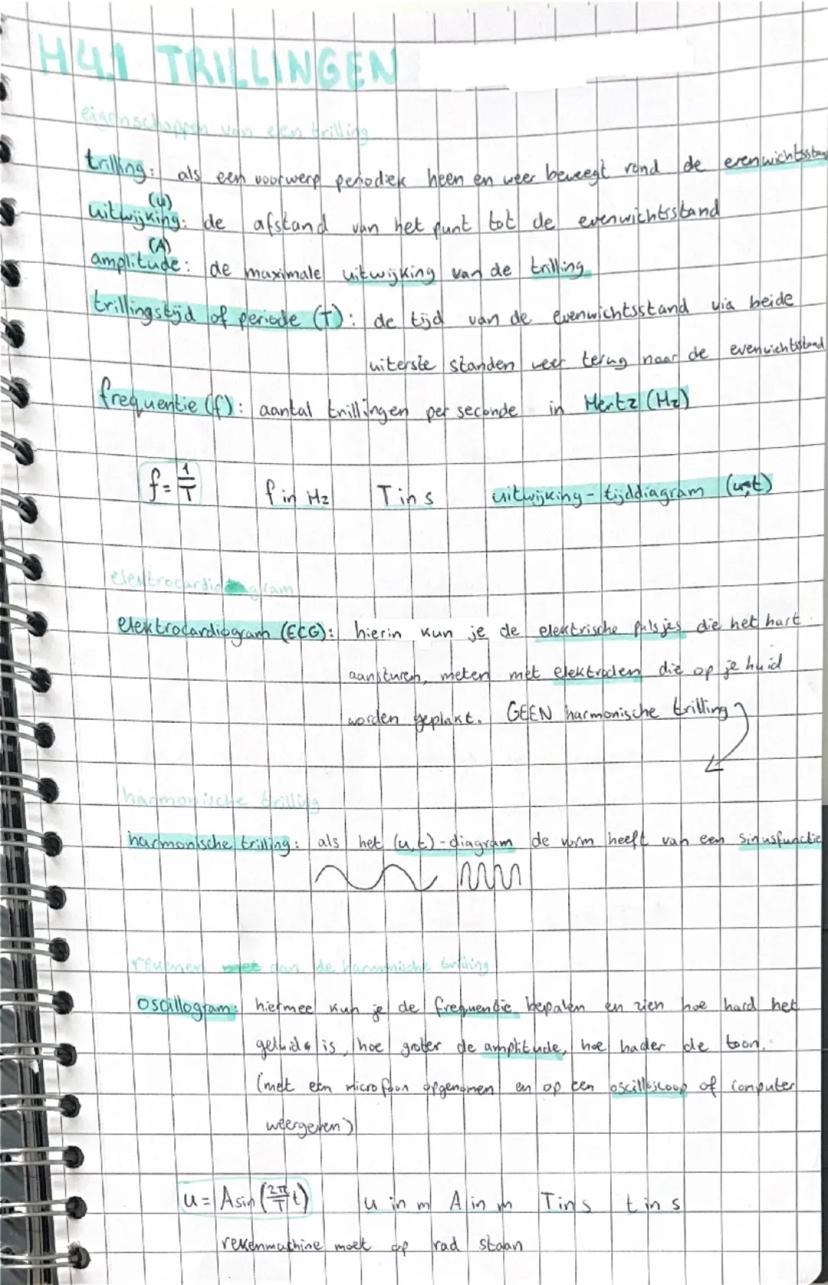 H4.1 TRILLINGEN
eigenschappen van een trilling
trilling: als een voorwerp periodiek heen en weer beweegt rond de evenwichtsstand
(u)
uitwijking: de afstand van het punt tot de evenwichtsstand
(A)
amplitude: de maximale uitwijking van de trilling
trillingstijd of periode (T): de tijd van de evenwichtsstand via beide
uiterste standen weer terug naar de evenwichtsstand
frequentie (f): aantal trillingen per seconde in Hertz (Hz)
f = 1/T f in Hz T in s uitwijking-tijddiagram (u,t)
elektrocardiogram
elektrocardiogram (ECG): hierin kun je de elektrische pulsjes die het hart
aansturen, meten met elektroden die op je huid
worden geplakt. GEEN harmonische trilling
harmonische trilling
harmonische trilling: als het (u,t)-diagram de vorm heeft van een sinusfunctie
rekenen aan de harmonische trilling
oscillogram: hiermee kun je de frequentie bepalen en zien hoe hard het
geluid is, hoe groter de amplitude, hoe harder de toon.
(met een microfoon opgenomen en op een oscilloscoop of computer
weergeven)
u = A sin(2π/T t) u in m A in m T in s t in s
rekenmachine moet op rad staan